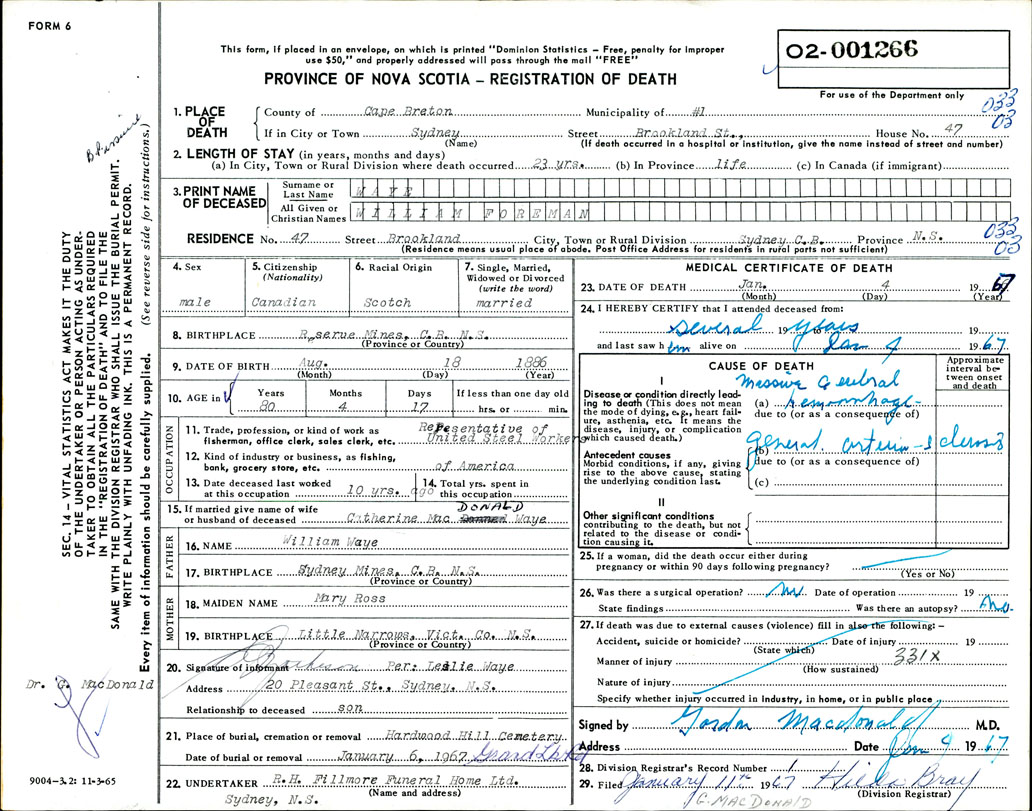 FORM 6
This form, if placed in an envelope, on which is printed "Dominion Statistics – Free, penalty for improper
use $50," and properly addressed will pass through the mail "FREE"
PROVINCE OF NOVA SCOTIA – REGISTRATION OF DEATH
02-001266
For use of the Department only
033
03
1. PLACE OF DEATH
County of Cape Breton Municipality of #1
If in City or Town Sydney Street Brookland St., House No. 47
(Name) (If death occurred in a hospital or institution, give the name instead of street and number)
2. LENGTH OF STAY (in years, months and days)
(a) In City, Town or Rural Division where death occurred 23 yrs. (b) In Province life (c) In Canada (if immigrant)
3. PRINT NAME OF DECEASED
Surname or Last Name WAYE
All Given or Christian Names WILLIAM FOREMAN
033
03
RESIDENCE No. 47 Street Brookland City, Town or Rural Division Sydney C.B. Province N.S.
(Residence means usual place of abode. Post Office Address for residents in rural parts not sufficient)
4. Sex
male
5. Citizenship
(Nationality)
Canadian
6. Racial Origin
Scotch
7. Single, Married,
Widowed or Divorced
(write the word)
married
8. BIRTHPLACE R_serve Mines, C.B. N.S.
(Province or Country)
9. DATE OF BIRTH Aug. 18 1886
(Month) (Day) (Year)
10. AGE in
Years Months Days If less than one day old
80 4 17 hrs. or min.
OCCUPATION
11. Trade, profession, or kind of work as
fisherman, office clerk, sales clerk, etc. Representative of
United Steel Workers
12. Kind of industry or business, as fishing,
bank, grocery store, etc. of America
13. Date deceased last worked
at this occupation 10 yrs. ago
14. Total yrs. spent in
this occupation
15. If married give name of wife
or husband of deceased Catherine Mac DONALD Waye
FATHER
16. NAME William Waye
17. BIRTHPLACE Sydney Mines, C.B. N.S.
(Province or Country)
MOTHER
18. MAIDEN NAME Mary Ross
19. BIRTHPLACE Little Narrows, Vict. Co. N.S.
(Province or Country)
20. Signature of informant Per: Leslie Waye
Address 20 Pleasant St., Sydney, N.S.
Relationship to deceased son
21. Place of burial, cremation or removal Hardwood Hill Cemetery
Date of burial or removal January 6, 1967
22. UNDERTAKER R.H. Fillmore Funeral Home Ltd.
(Name and address)
Sydney, N.S.
MEDICAL CERTIFICATE OF DEATH
23. DATE OF DEATH Jan. 4 1967
(Month) (Day) (Year)
24. I HEREBY CERTIFY that I attended deceased from:
several 19 years 19
and last saw him alive on Jan 4 1967
CAUSE OF DEATH
Approximate interval between onset and death
I
Disease or condition directly leading to death (This does not mean the mode of dying, e.g., heart failure, asthenia, etc. It means the disease, injury, or complication which caused death.)
Massive Cerebral
(a) hemorrhage
due to (or as a consequence of)
Antecedent causes
Morbid conditions, if any, giving rise to the above cause, stating the underlying condition last.
(b) general. arterio-sclerosis
due to (or as a consequence of)
(c)
II
Other significant conditions
contributing to the death, but not related to the disease or condition causing it.
25. If a woman, did the death occur either during
pregnancy or within 90 days following pregnancy?
(Yes or No)
26. Was there a surgical operation? no Date of operation 19
State findings Was there an autopsy? no
27. If death was due to external causes (violence) fill in also the following: –
Accident, suicide or homicide? Date of injury 19
(State which)
Manner of injury 331X
(How sustained)
Nature of injury
Specify whether injury occurred in industry, in home, or in public place
Signed by Gordon Macdonald M.D.
Address Date Jan 9 1967
28. Division Registrar's Record Number 1
29. Filed January 11th 1967 Hilda Bray
(Division Registrar)
G. MACDONALD
SEC. 14 – VITAL STATISTICS ACT MAKES IT THE DUTY
OF THE UNDERTAKER OR PERSON ACTING AS UNDER-
TAKER TO OBTAIN ALL THE PARTICULARS REQUIRED
IN THE "REGISTRATION OF DEATH" AND TO FILE THE
SAME WITH THE DIVISION REGISTRAR WHO SHALL ISSUE THE BURIAL PERMIT.
WRITE PLAINLY WITH UNFADING INK. THIS IS A PERMANENT RECORD.
Every item of information should be carefully supplied. (See reverse side for instructions.)
Dr. G. MacDonald
9004-3.2: 11-3-65